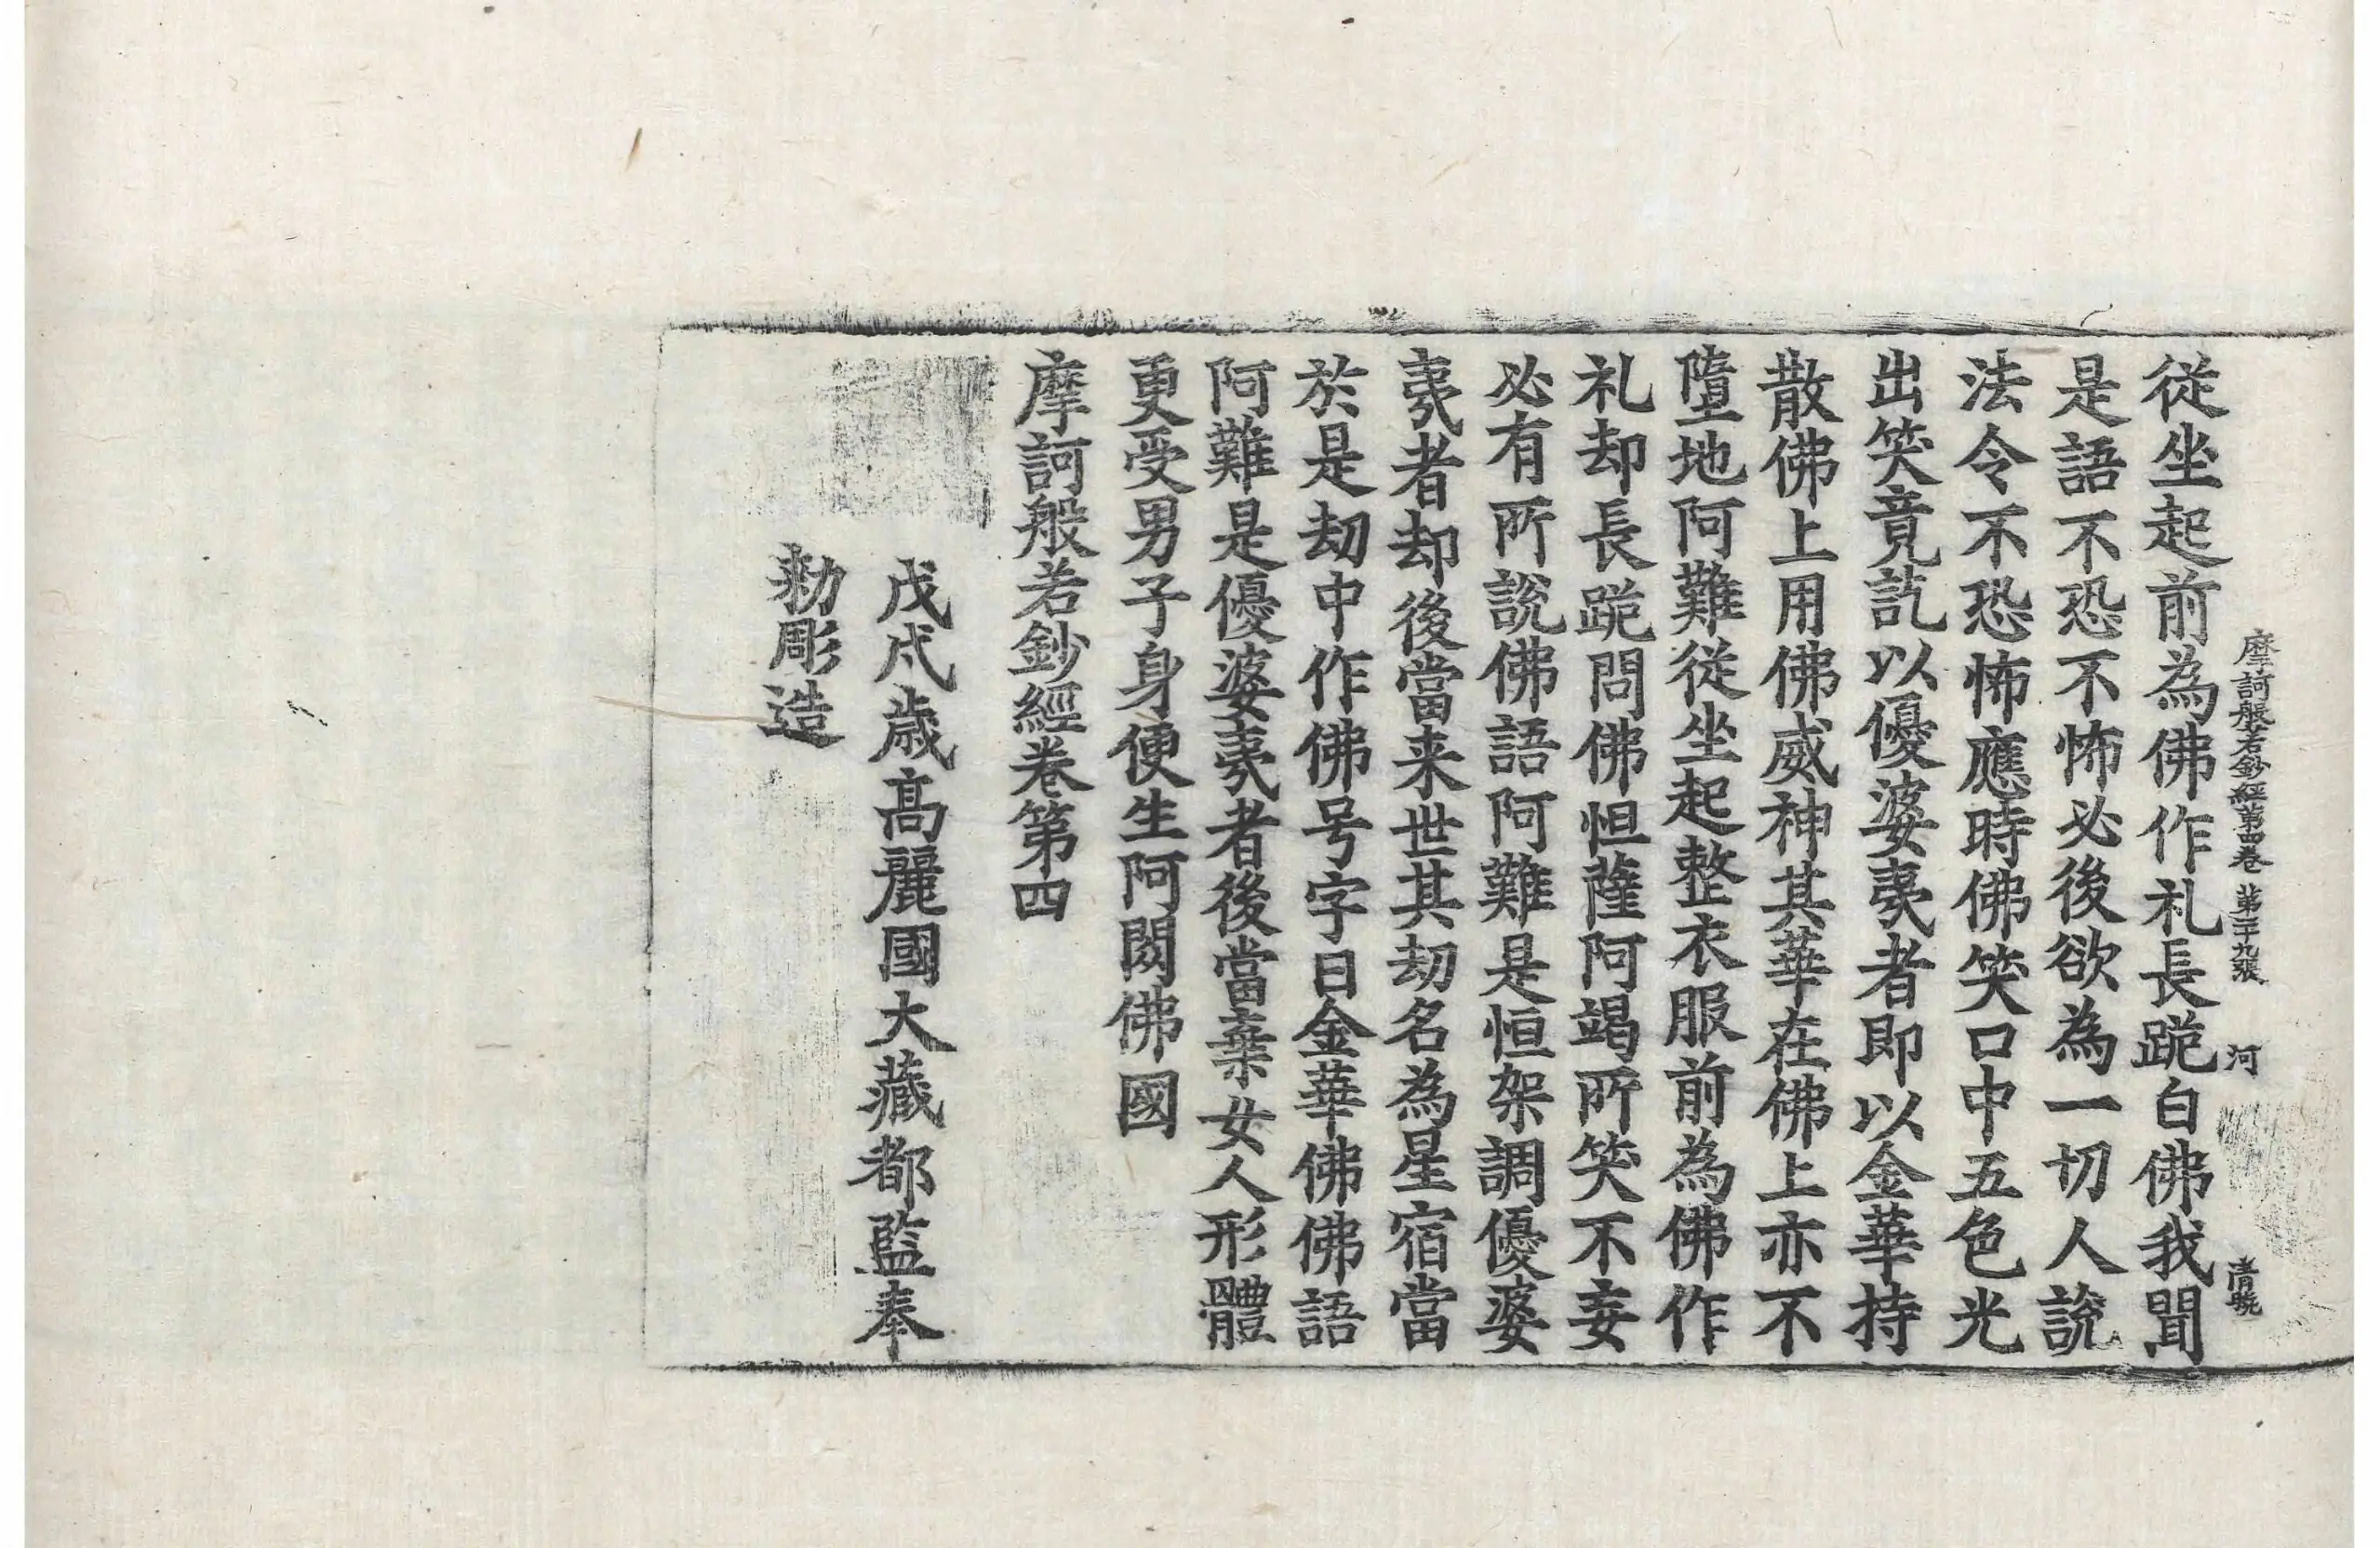 摩訶般若鈔經第四卷 第二十九張 河 清晈
從坐起前為佛作礼長跪白佛我聞
是語不恐不怖必後欲為一切人說
法令不恐怖應時佛笑口中五色光
出笑竟訖以優婆夷者即以金華持
散佛上用佛威神其華在佛上亦不
墮地阿難從坐起整衣服前為佛作
礼却長跪問佛怛薩阿竭所笑不妄
必有所說佛語阿難是恒架調優婆
夷者却後當来世其劫名為星宿當
於是劫中作佛号字曰金華佛佛語
阿難是優婆夷者後當棄女人形體
更受男子身便生阿閦佛國
摩訶般若鈔經卷第四
戊戌歲高麗國大藏都監奉
勅彫造